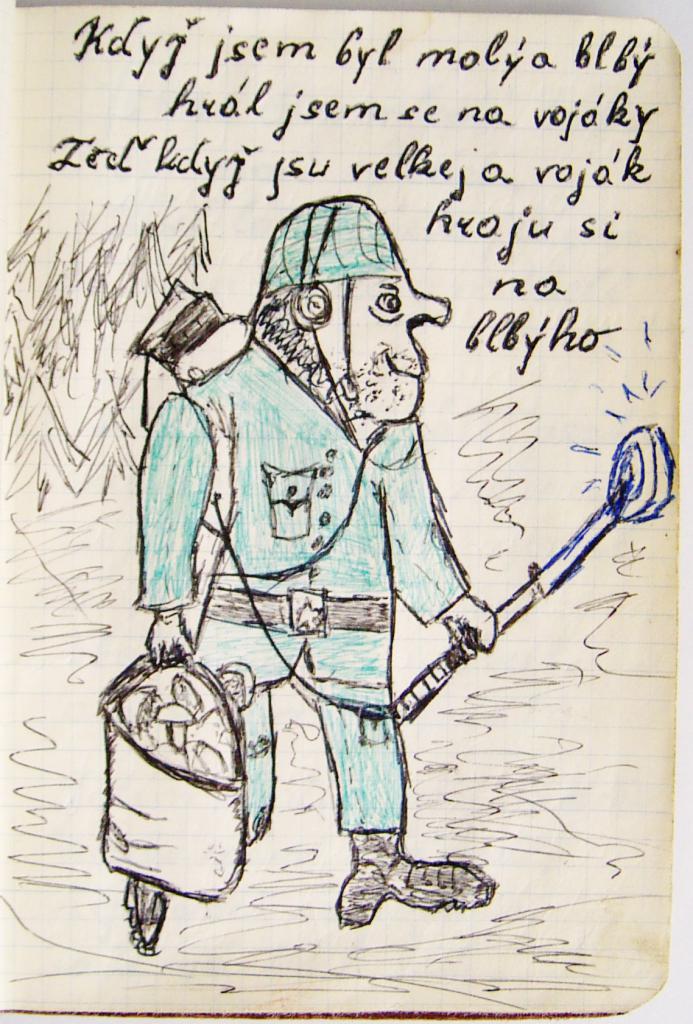 Když jsem byl malý a blbý
hrál jsem se na vojáky
Teď když jsu velkej a voják
hraju si
na
blbýho